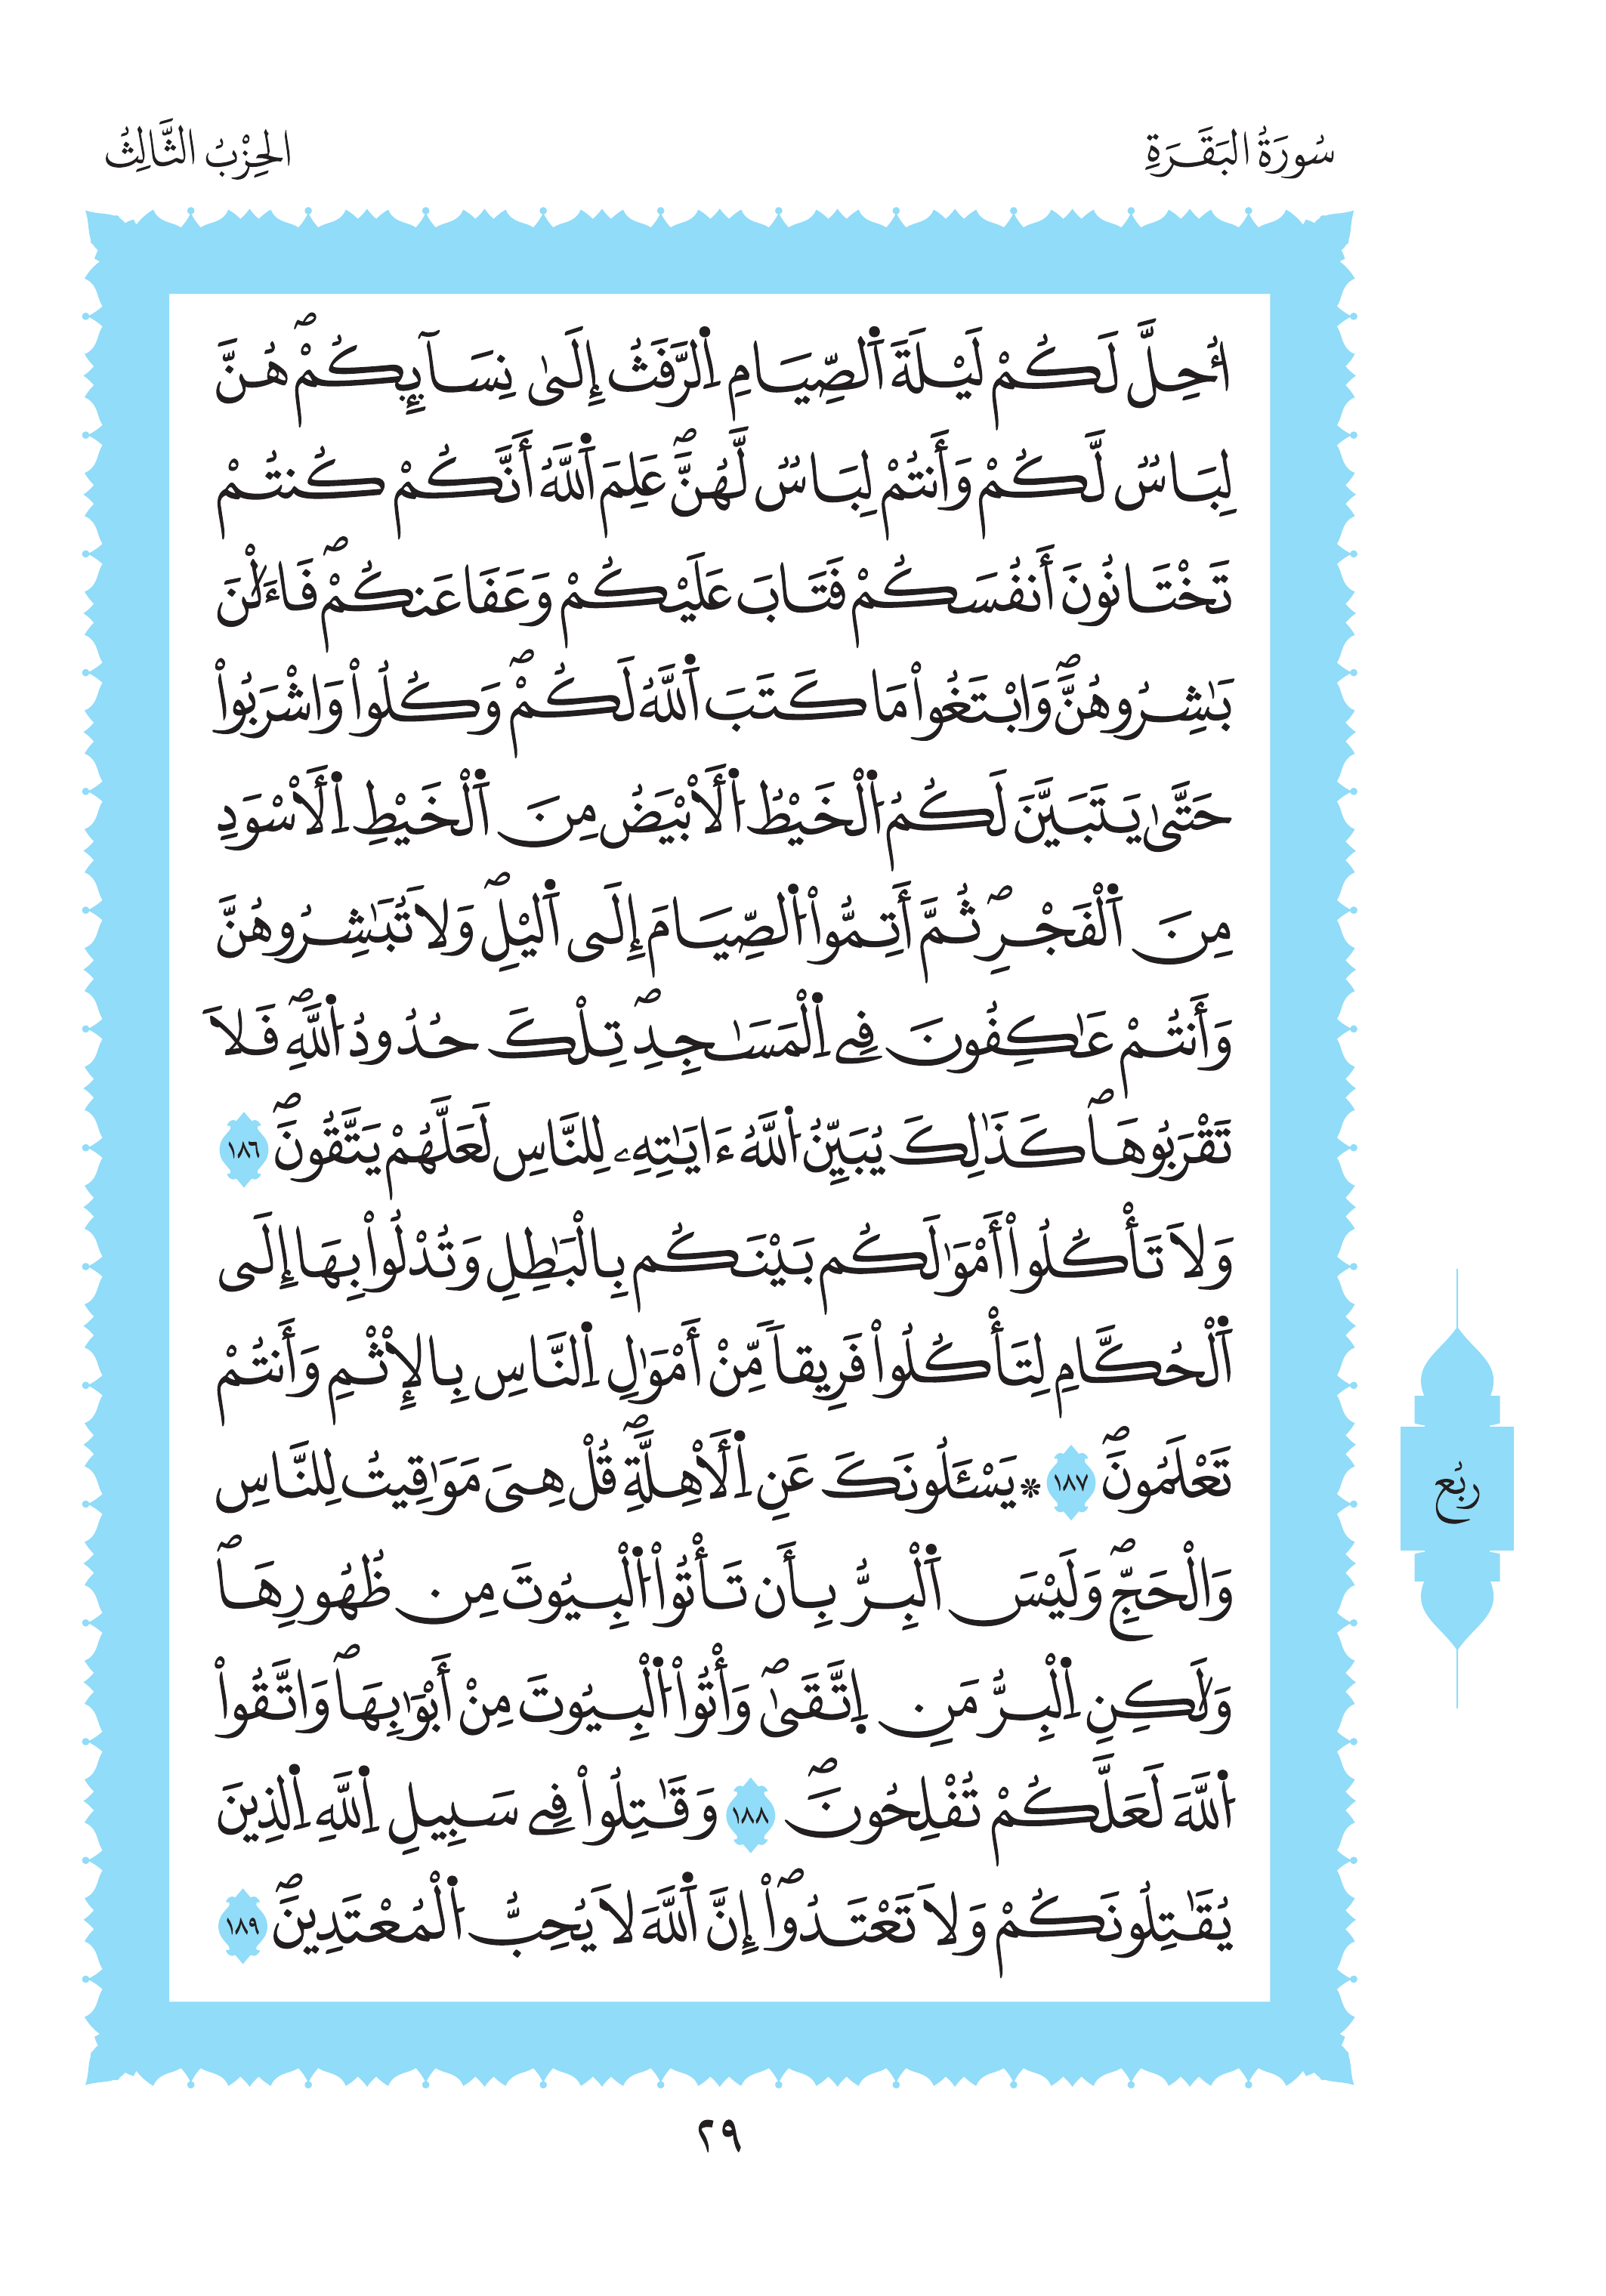 سُورَةُ البَقَرَةِ
الحِزْبُ الثَّالِثُ
اُ۟حِلَّ لَكُمْ لَيْلَةَ اَ۬لصِّيَامِ اِ۬لرَّفَثُ إِلَىٰ نِسَآئِكُمْۖ هُنَّ
لِبَاسٞ لَّكُمْ وَأَنتُمْ لِبَاسٞ لَّهُنَّۖ عَلِمَ اَ۬للَّهُ أَنَّكُمْ كُنتُمْ
تَخْتَانُونَ أَنفُسَكُمْ فَتَابَ عَلَيْكُمْ وَعَفَا عَنكُمْۖ فَالَٰٔنَ
بَٰشِرُوهُنَّۖ وَابْتَغُواْ مَا كَتَبَ اَ۬للَّهُ لَكُمْۖ وَكُلُواْ وَاشْرَبُواْ
حَتَّىٰ يَتَبَيَّنَ لَكُمُ اُ۬لْخَيْطُ اُ۬لَابْيَضُ مِنَ اَ۬لْخَيْطِ اِ۬لَاسْوَدِ
مِنَ اَ۬لْفَجْرِۖ ثُمَّ أَتِمُّواْ اُ۬لصِّيَامَ إِلَى اَ۬ليْلِۖ وَلَا تُبَٰشِرُوهُنَّ
وَأَنتُمْ عَٰكِفُونَ فِے اِ۬لْمَسَٰجِدِۖ تِلْكَ حُدُودُ اُ۬للَّهِۖ فَلَا
تَقْرَبُوهَاۖ كَذَٰلِكَ يُبَيِّنُ اُ۬للَّهُ ءَايَٰتِهِۦ لِلنَّاسِ لَعَلَّهُمْ يَتَّقُونَۖ ١٨٦
وَلَا تَأْكُلُواْ أَمْوَٰلَكُم بَيْنَكُم بِالْبَٰطِلِ وَتُدْلُواْ بِهَا إِلَى
اَ۬لْحُكَّامِ لِتَأْكُلُواْ فَرِيقاٗ مِّنْ أَمْوَٰلِ اِ۬لنَّاسِ بِالِاثْمِ وَأَنتُمْ
تَعْلَمُونَۖ ١٨٧ ۞ يَسْـَٔلُونَكَ عَنِ اِ۬لَاهِلَّةِۖ قُلْ هِىَ مَوَٰقِيتُ لِلنَّاسِ
وَالْحَجِّۖ وَلَيْسَ اَ۬لْبِرُّ بِأَن تَأْتُواْ اُ۬لْبِيُوتَ مِن ظُهُورِهَاۖ
وَلَٰكِنِ اِ۬لْبِرُّ مَنِ اِ۪تَّقَىٰۖ وَأْتُواْ اُ۬لْبِيُوتَ مِنْ أَبْوَٰبِهَاۖ وَاتَّقُواْ
اُ۬للَّهَ لَعَلَّكُمْ تُفْلِحُونَۖ ١٨٨ وَقَٰتِلُواْ فِے سَبِيلِ اِ۬للَّهِ اِ۬لذِينَ
يُقَٰتِلُونَكُمْ وَلَا تَعْتَدُواْۖ إِنَّ اَ۬للَّهَ لَا يُحِبُّ اُ۬لْمُعْتَدِينَۖ ١٨٩
ربُع
٢٩